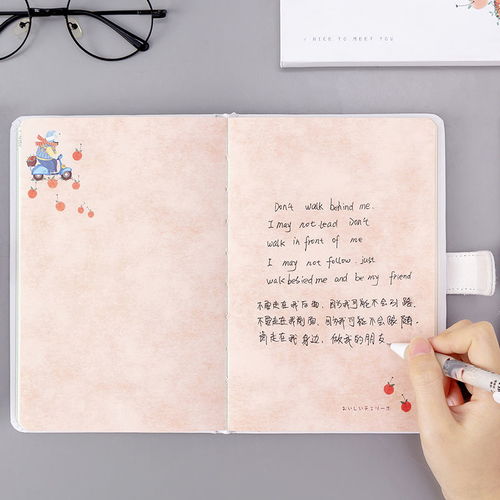 / NICE TO MEET YOU
Don't walk behind me.
I may not lead Don't
walk in front of me
I may not follow. just
walk behied me and be my friend
不要走在我后面, 因为我可能不会引路.
不要走在我前面, 因为我可能不会跟随.
走在我身边, 做我的朋友
おいしい